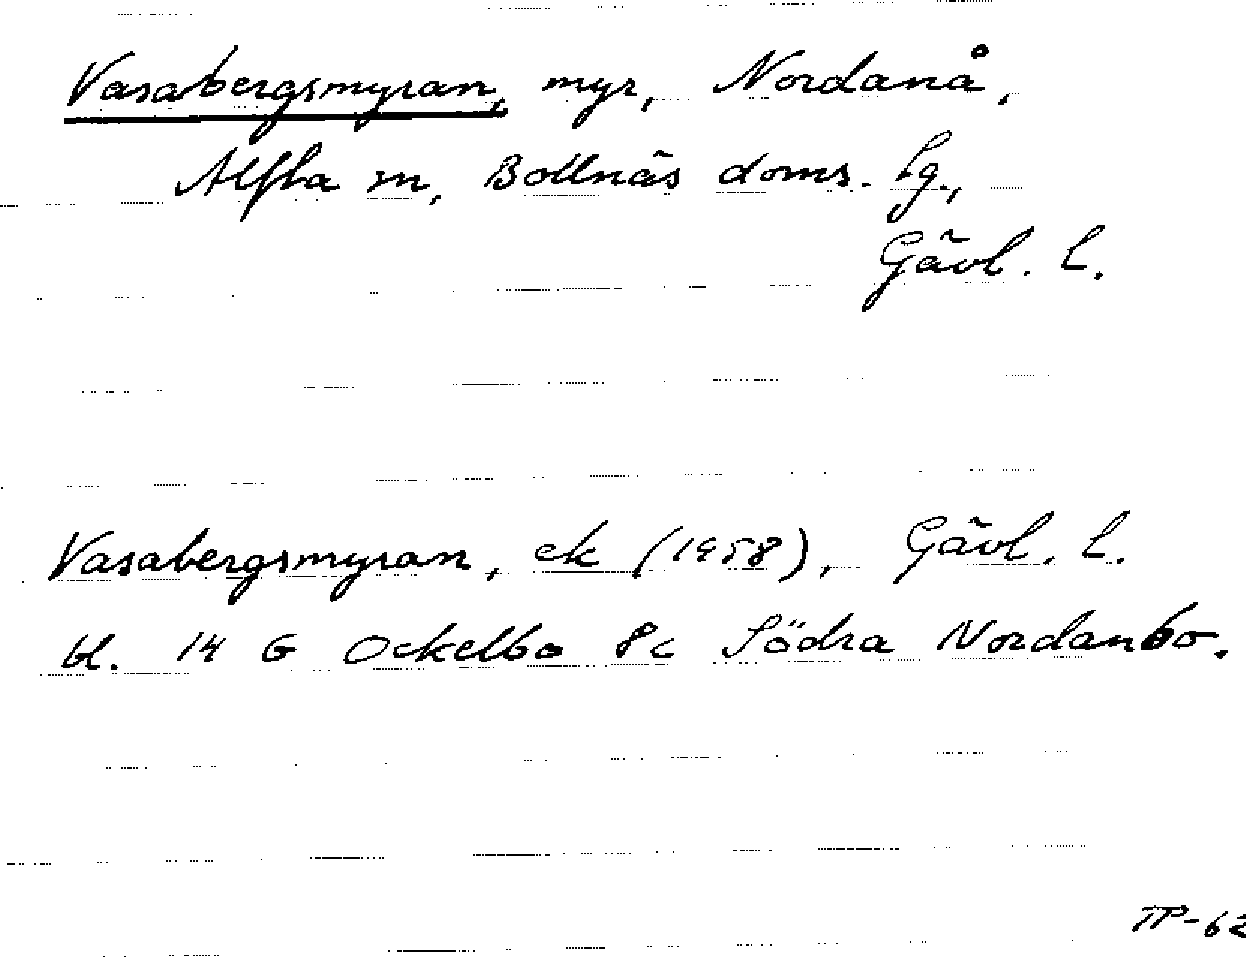 Vasabergsmyran, myr, Nordanå,
Alfta sn, Bollnäs doms. hg.,
Gävl. l.
Vasabergsmyran, ek (1958), Gävl. l.
bl. 14 G Ockelbo 8c Södra Nordanbo.
TP-62